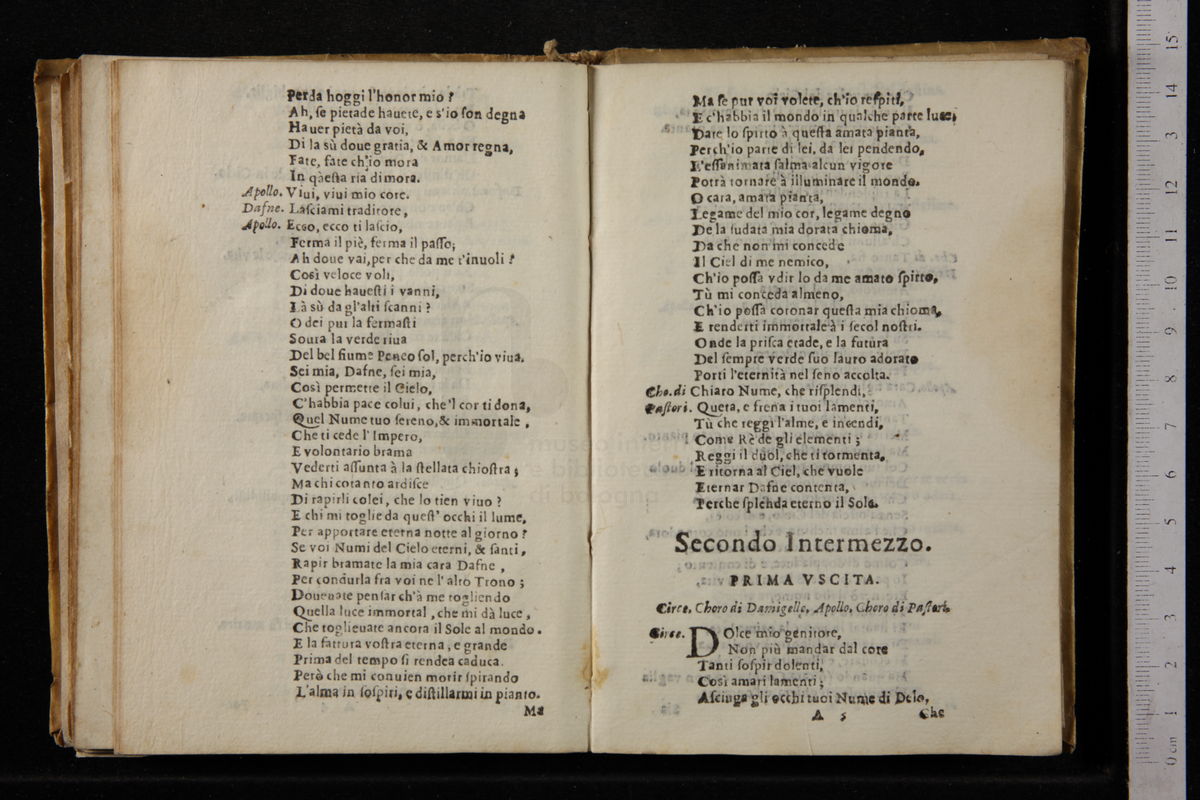 Perda hoggi l'honor mio?
Ah, ſe pietade hauete, e s'io ſon degna
Hauer pietà da voi,
Di la sù doue gratia, & Amor regna,
Fate, fate ch'io mora
In qàeſta ria dimora.
Apollo. Viui, viui mio core.
Dafne. Laſciami traditore,
Apollo. Ecco, ecco ti laſcio,
Ferma il piè, ferma il paſſo;
Ah doue vai, per che da me t'inuoli?
Così veloce voli,
Di doue haueſti i vanni,
Là sù da gl'alti ſcanni?
O dei pur la fermaſti
Soura la verde riua
Del bel fiume Peneo ſol, perch'io viua.
Sei mia, Dafne, ſei mia,
Così permette il Cielo,
C'habbia pace colui, che'l cor ti dona,
Quel Nume tuo ſereno, & immortale,
Che ti cede l'Impero,
E volontario brama
Vederti aſſunta à la ſtellata chioſtra;
Ma chi cotanto ardiſce
Di rapirli colei, che lo tien viuo?
E chi mi toglie da queſt' occhi il lume,
Per apportare eterna notte al giorno?
Se voi Numi del Cielo eterni, & ſanti,
Rapir bramate la mia cara Dafne,
Per condurla fra voi ne l'alto Trono;
Doueuate penſar ch'à me togliendo
Quella luce immortal, che mi dà luce,
Che toglieuate ancora il Sole al mondo.
E la fattura voſtra eterna, e grande
Prima del tempo ſi rendea caduca.
Però che mi conuien morir ſpirando
L'alma in ſoſpiri, e diſtillarmi in pianto.
Ma
Ma ſe pur voi volete, ch'io reſpiri,
E c'habbia il mondo in qualche parte luce,
Date lo ſpirto à queſta amata pianta,
Perch'io parte di lei, da lei pendendo,
L'eſſanimata ſalma alcun vigore
Potrà tornare à illuminare il mondo.
O cara, amata pianta,
Legame del mio cor, legame degno
De la ſudata mia dorata chioma,
Da che non mi concede
Il Ciel di me nemico,
Ch'io poſſa vdir lo da me amato ſpirto,
Tù mi conceda almeno,
Ch'io poſſa coronar queſta mia chioma,
E renderti immortale à i ſecol noſtri.
Onde la priſca etade, e la futura
Del ſempre verde ſuo lauro adorato
Porti l'eternità nel ſeno accolta.
Cho. di Chiaro Nume, che riſplendi,
Paſtori. Queta, e frena i tuoi lamenti,
Tù che reggi l'alme, e incendi,
Come Rè de gli elementi;
Reggi il duol, che ti tormenta,
E ritorna al Ciel, che vuole
Eternar Dafne contenta,
Perche ſplenda eterno il Sole.
Secondo Intermezzo.
PRIMA VSCITA.
Circe, Choro di Damigelle, Apollo, Choro di Paſtori.
Circe. DOlce mio genitore,
Non più mandar dal core
Tanti ſoſpir dolenti,
Così amari lamenti;
Aſciuga gli occhi tuoi Nume di Delo,
A 5 Che